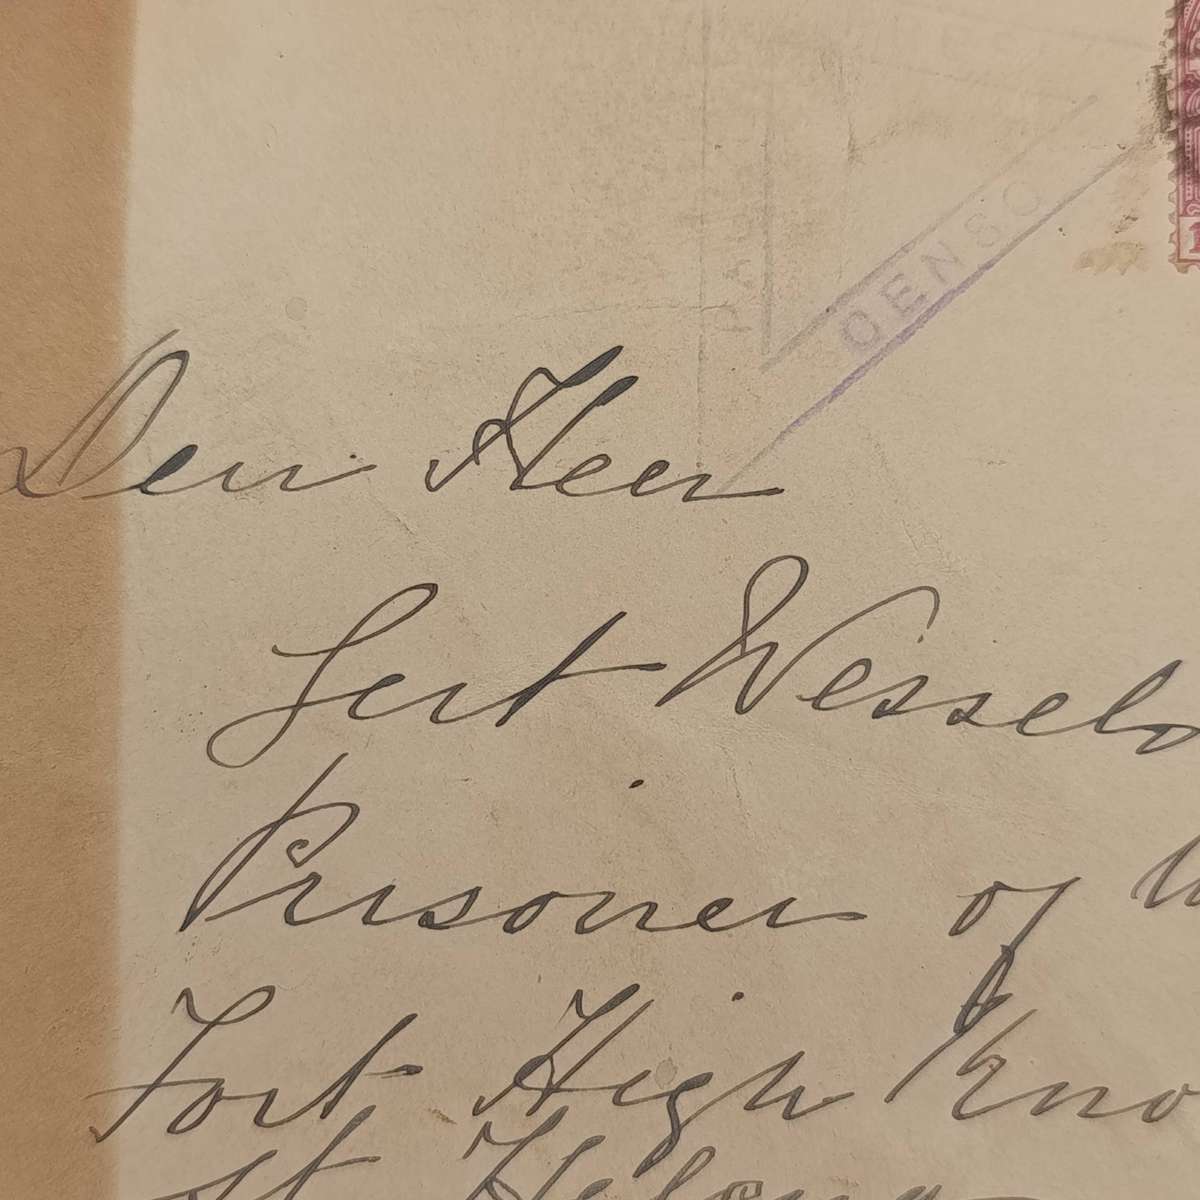 OENSO
Den Heer
Gert Wessels
Prisoner of
Fort High Kno
St Helena